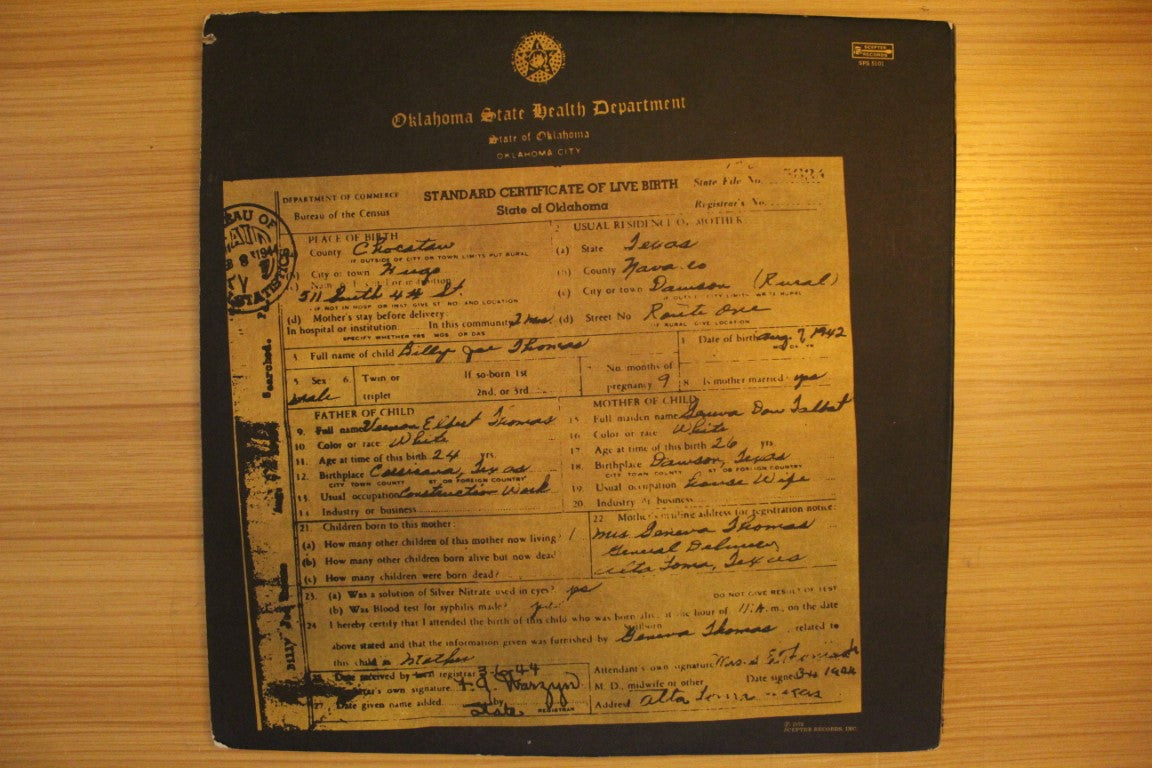 SCEPTER
RECORDS
SPS 5101
Oklahoma State Health Department
State of Oklahoma
OKLAHOMA CITY
DEPARTMENT OF COMMERCE
Bureau of the Census
STANDARD CERTIFICATE OF LIVE BIRTH
State of Oklahoma
State File No.
Registrar's No.
PLACE OF BIRTH
County Choctaw
IF OUTSIDE OF CITY OR TOWN LIMITS PUT RURAL
City or town Hugo
511 South 4th St
IF NOT IN HOSP. OR INST. GIVE ST. NO. AND LOCATION
(d) Mother's stay before delivery:
In hospital or institution In this community 2 mos.
SPECIFY WHETHER YRS. MOS. OR DAS.
2 USUAL RESIDENCE OF MOTHER
(a) State Texas
(b) County
(c) City or town Dawson (Rural)
(d) Street No Route One
IF RURAL GIVE LOCATION
3. Full name of child Billy Joe Thomas
Date of birth Aug. 7, 1942
5. Sex Male
6. Twin or triplet
If so-born 1st
2nd, or 3rd
No. months of
pregnancy 9
8. Is mother married yes
FATHER OF CHILD
9. Full name Vernon Elbert Thomas
10. Color or race White
11. Age at time of this birth 24 yrs.
12. Birthplace Corsicana, Texas
CITY TOWN COUNTY ST. OR FOREIGN COUNTRY
13. Usual occupation Construction Work
14. Industry or business
MOTHER OF CHILD
15. Full maiden name Geneva Talbot
16. Color or race White
17. Age at time of this birth 26 yrs.
18. Birthplace Dawson, Texas
CITY TOWN COUNTY ST. OR FOREIGN COUNTRY
19. Usual occupation House Wife
20. Industry or business
21. Children born to this mother:
(a) How many other children of this mother now living? 1
(b) How many other children born alive but now dead
(c) How many children were born dead?
22. Mother's mailing address for registration notice:
Mrs Geneva Thomas
General Delivery
Alta Loma, Texas
23. (a) Was a solution of Silver Nitrate used in eyes? yes
(b) Was Blood test for syphilis made? yes
DO NOT GIVE RESULT OF TEST
24. I hereby certify that I attended the birth of this child who was born alive at the hour of 11:A.m., on the date
above stated and that the information given was furnished by Geneva Thomas related to
this child as Mother
Date received by registrar 3-6-44
own signature Warzyn
27. Date given name added by State REGISTRAR
Attendant's own signature
M. D., midwife or other Date signed
Address Alta Loma Texas
Searched.
Billy Joe Thomas
℗ 1972
SCEPTER RECORDS, INC.